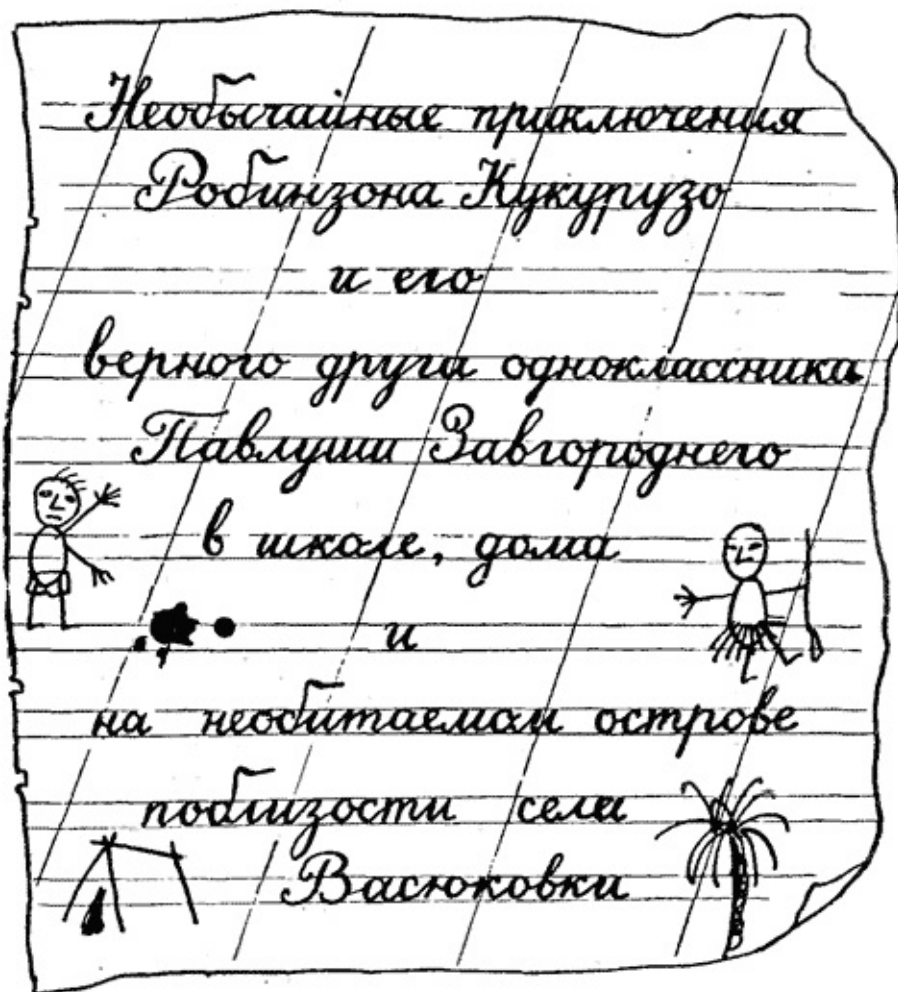 Необычайные приключения
Робинзона Кукурузо
и его
верного друга одноклассника
Павлуши Завгороднего
в школе, дома
и
на необитаемом острове
поблизости села
Васюковки